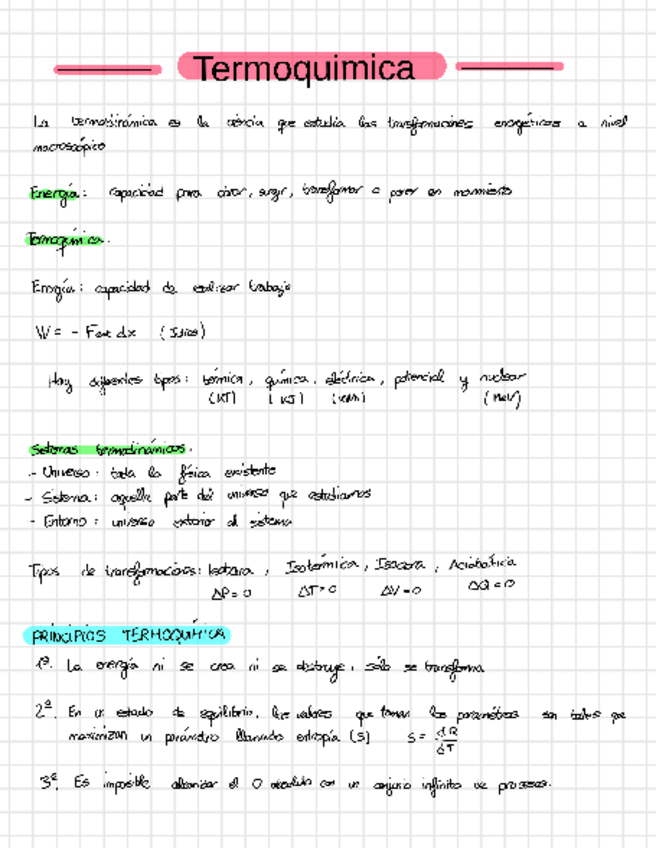 Termoquimica
La termodinámica es la ciencia que estudia las transformaciones energéticas a nivel
macroscópico
Energía: capacidad para obrar, surgir, transformar o poner en movimiento
Termoquímica.
Energía: capacidad de realizar trabajo
W = - Fext dx (Julios)
Hay diferentes tipos: térmica, química, eléctrica, potencial y nuclear
(KJ) (KJ) (kWh) (MeV)
Sistemas termodinámicos.
- Universo: toda la física existente
- Sistema: aquella parte del universo que estudiamos
- Entorno: universo exterior al sistema
Tipos de transformacions: Isobara, Isotérmica, Isocora, Adiabática
ΔP=0 ΔT=0 ΔV=0 ΔQ=0
PRINCIPIOS TERMOQUÍMICA
1º. La energía ni se crea ni se destruye, sólo se transforma
2º. En un estado de equilibrio, los valores que toman los parámetros son tales que
maximizan un parámetro llamado entropía (S) S = dQ/dT
3º. Es imposible alcanzar el 0 absoluto con un conjunto infinito de procesos.